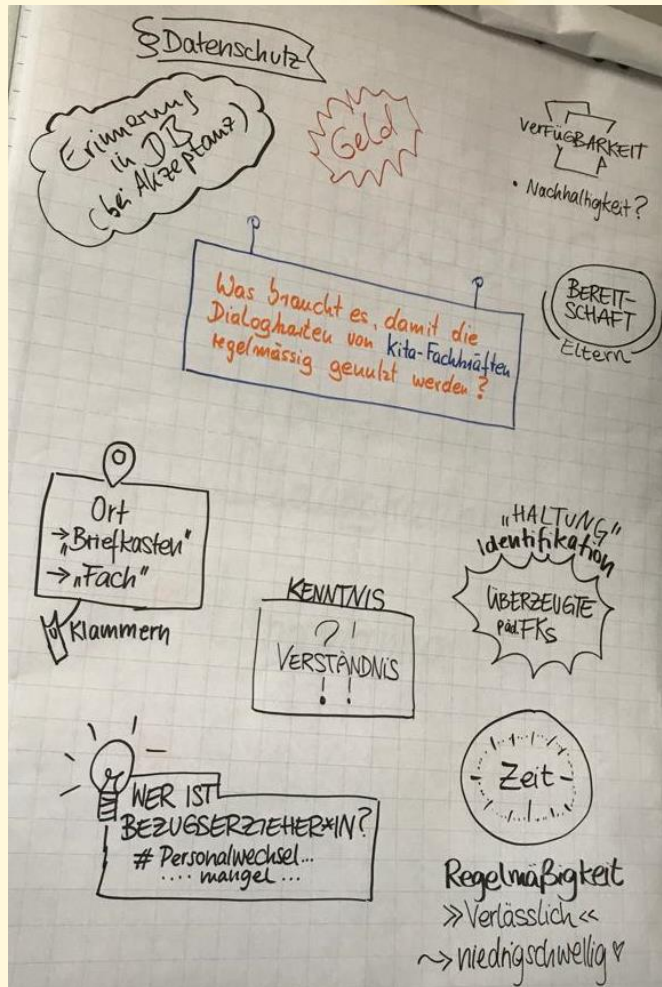 §Datenschutz
Erinnerung
in DB
(bei Akzeptanz)
Geld
VERFÜGBARKEIT
• Nachhaltigkeit?
Was braucht es, damit die
Dialogkarten von Kita-Fachkräften
regelmässig genutzt werden?
BEREIT-
SCHAFT
Eltern
Ort
→„Briefkasten"
→„Fach"
Klammern
KENNTNIS
?!
VERSTÄNDNIS
!!
„HALTUNG"
Identifikation
ÜBERZEUGTE
päd. FKs
WER IST
BEZUGSERZIEHER*IN?
# Personalwechsel...
.... mangel ...
Zeit
Regelmäßigkeit
»Verlässlich«
~> niedrigschwellig ♥